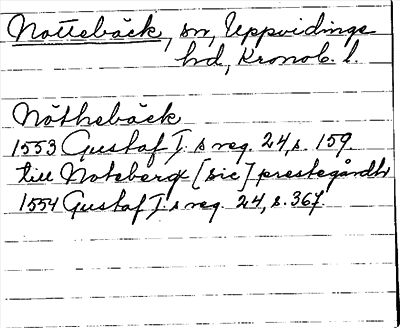 Nottebäck, sn, Uppvidinge
hd, Kronob. l.
Nöthebäck
1553 Gustaf I. s reg. 24, s. 159.
till Notsberg [sic] prestegårdh
1554 Gustaf I. s reg. 24, s. 367.